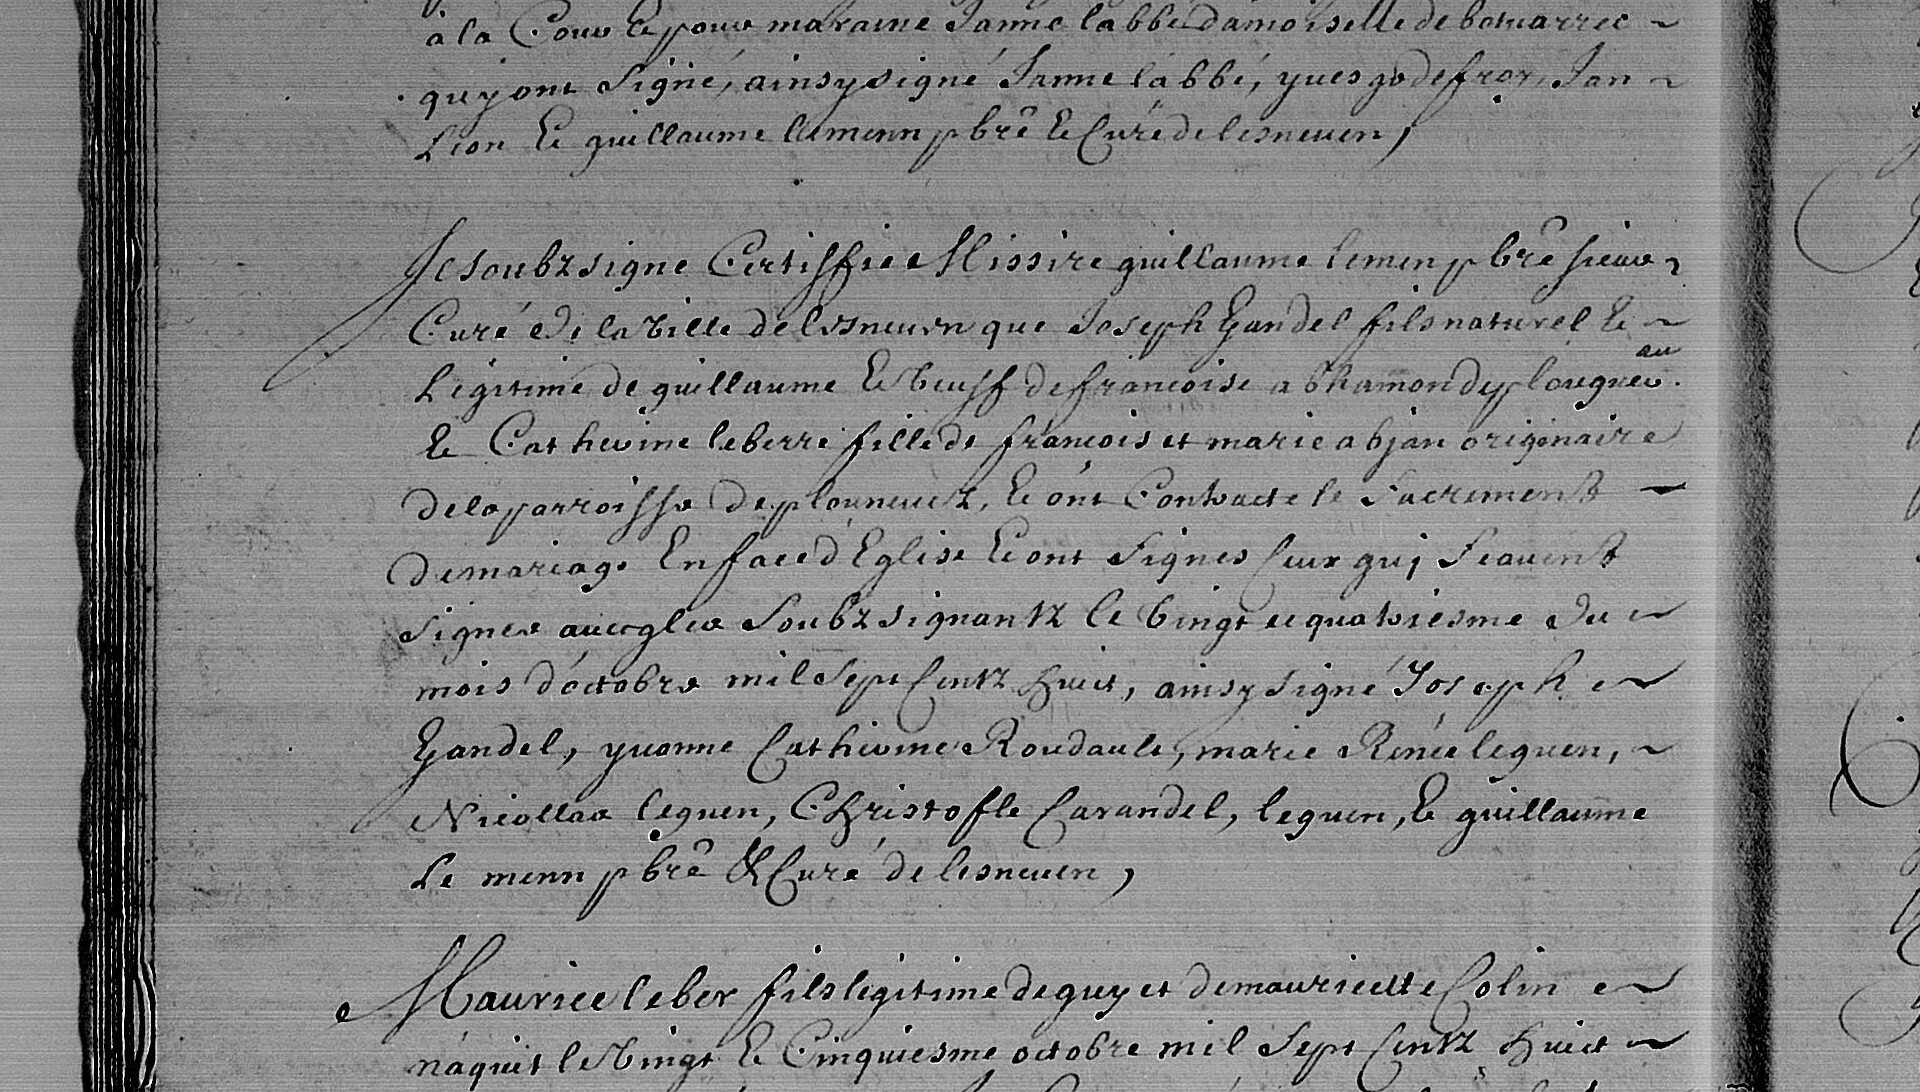 à la Cour Et pour maraine Janne labbé damoiselle de botuarrec ~
quy ont Signé, ainsy signé Janne labbé, yues godefroy, Jan ~
Lion Et guillaume lemenn pbrê Et Curé de lesneuen,
Je soubzsigne Certiffie Missire guillaume lemen pbrê sieur
Curé de la Ville de lesneuen que Joseph Gandel fils naturel Et ~
Légitime de guillaume Et Veuff de francoise abhamon de plouguer
au
Et Catherine leberre fille de francois et marie abjan originaire
de la parroisse de plouneuez, Et ont Contracte le Sacrement ~
de mariage En face d'Eglise Et ont Signes Ceux qui Scauent
Signer auecq les Soubzsignantz le Vingt et quatriesme du ~
mois d'octobre mil Sept Centz huict, ainsy signé Joseph ~
Gandel, yuonne Catherine Roudault, marie Renée leguen, ~
Nicollas leguen, Christofle Carandel, leguen, Et guillaume
Le menn pbrê & Curé de lesneuen,
Maurice leber fils legitime de guy et de mauricette Colin ~
náquit le Vingt Et Cinquiesme octobre mil Sept Centz huict ~